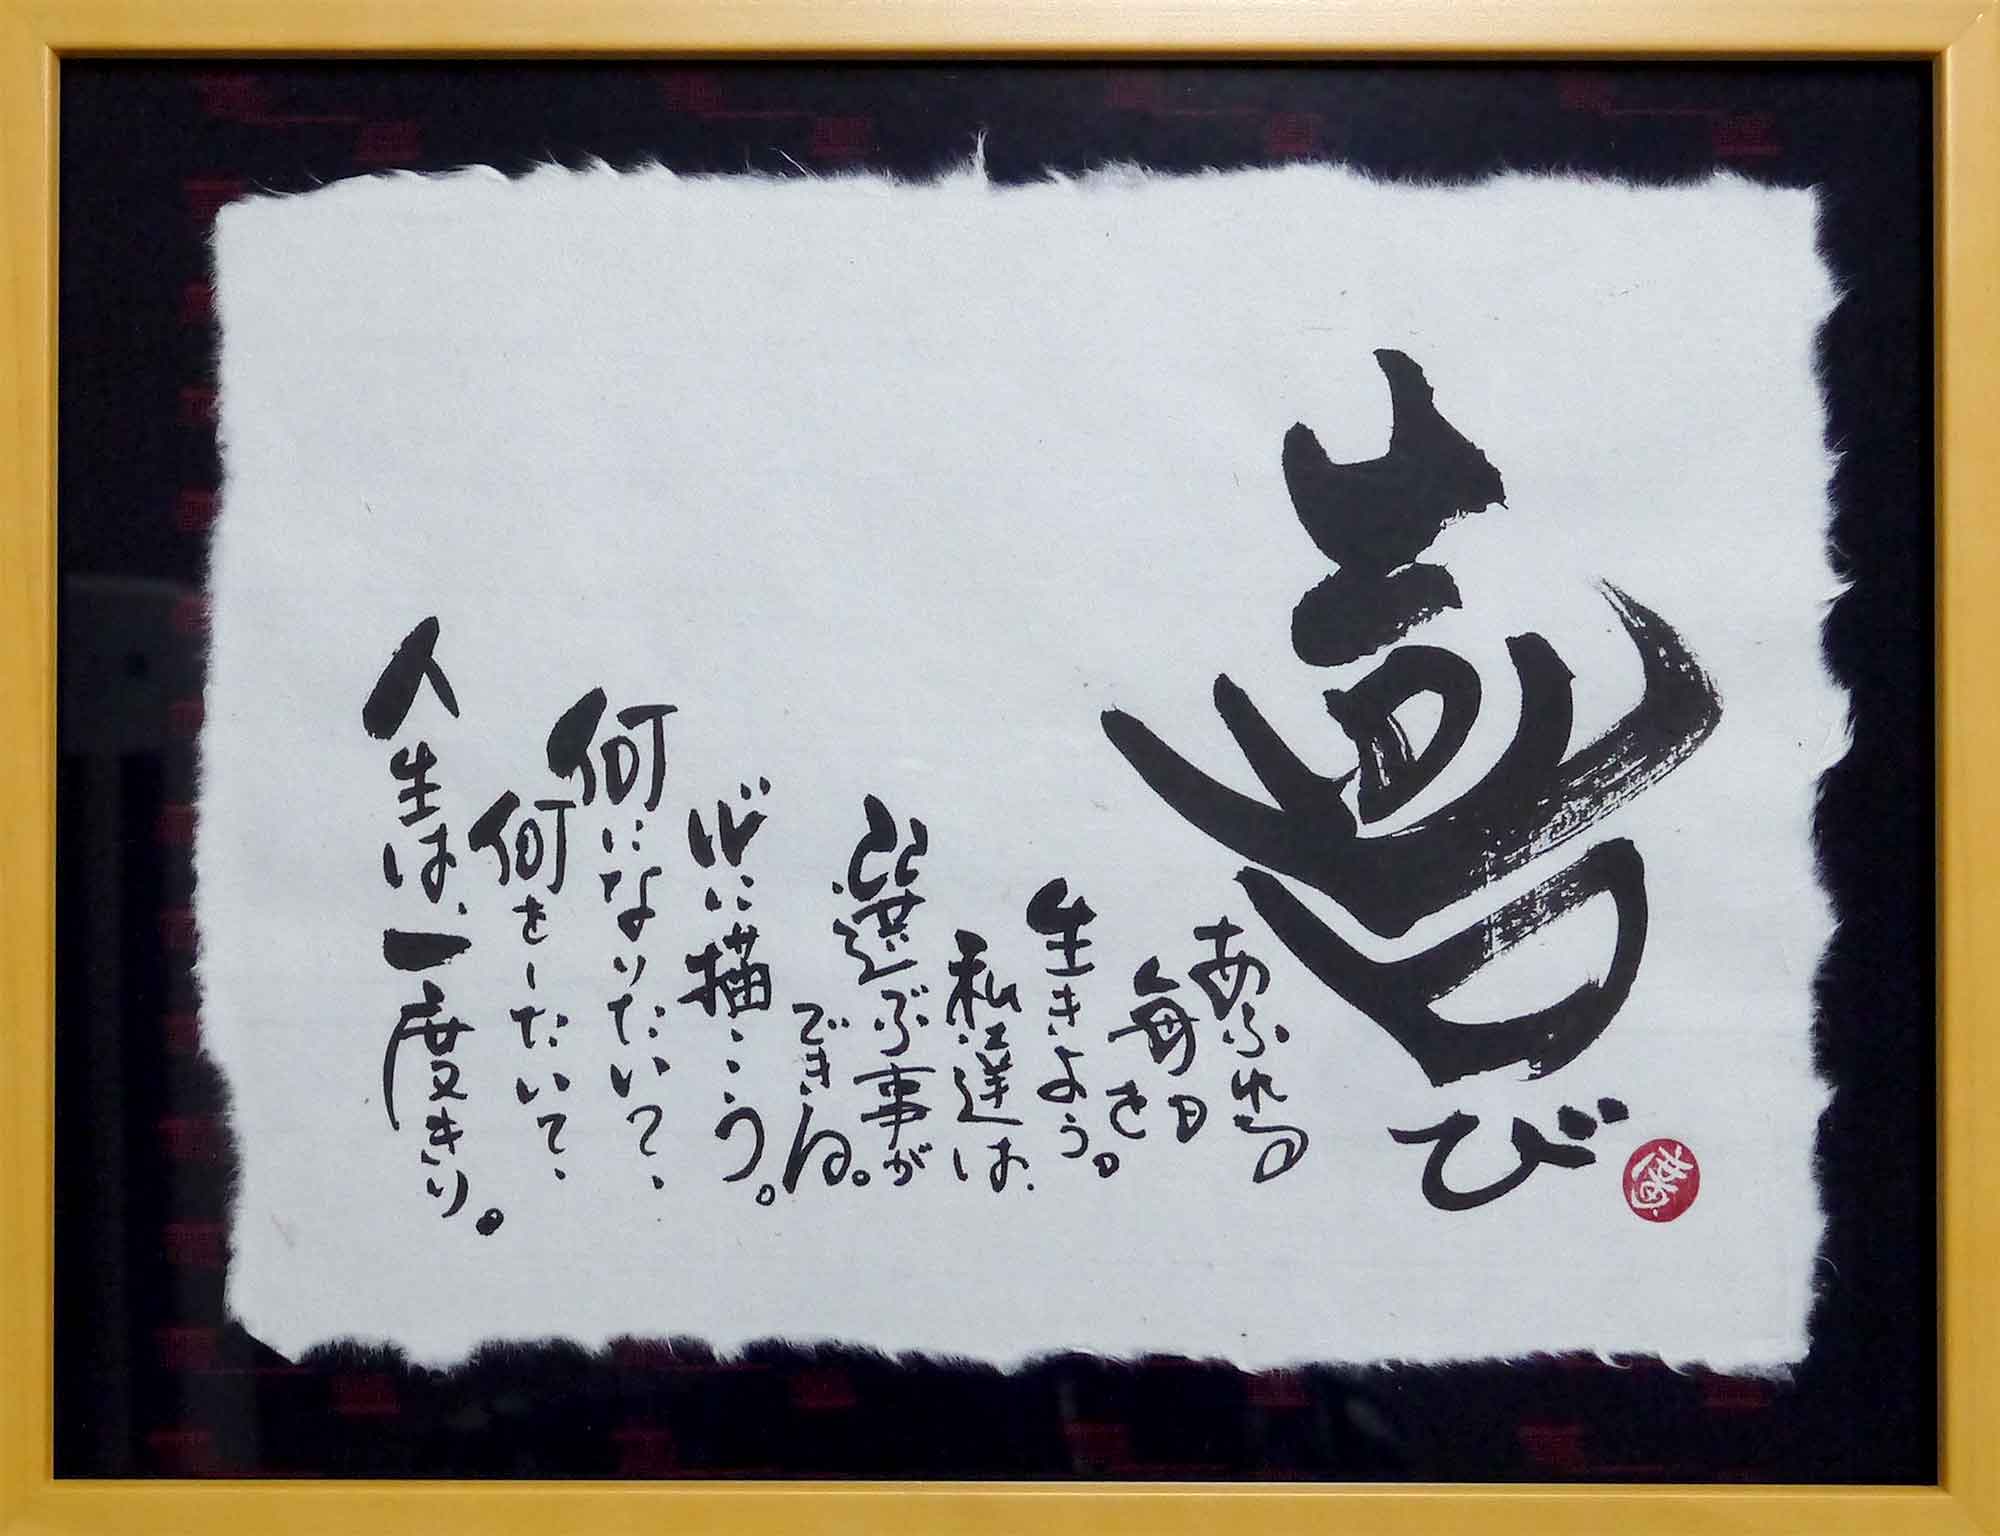 喜び
あふれる
毎日を
生きよう。
私達は、
選ぶ事が
できる。
心に描こう。
何になりたい?、
何をしたいて、
人生は、一度きり。